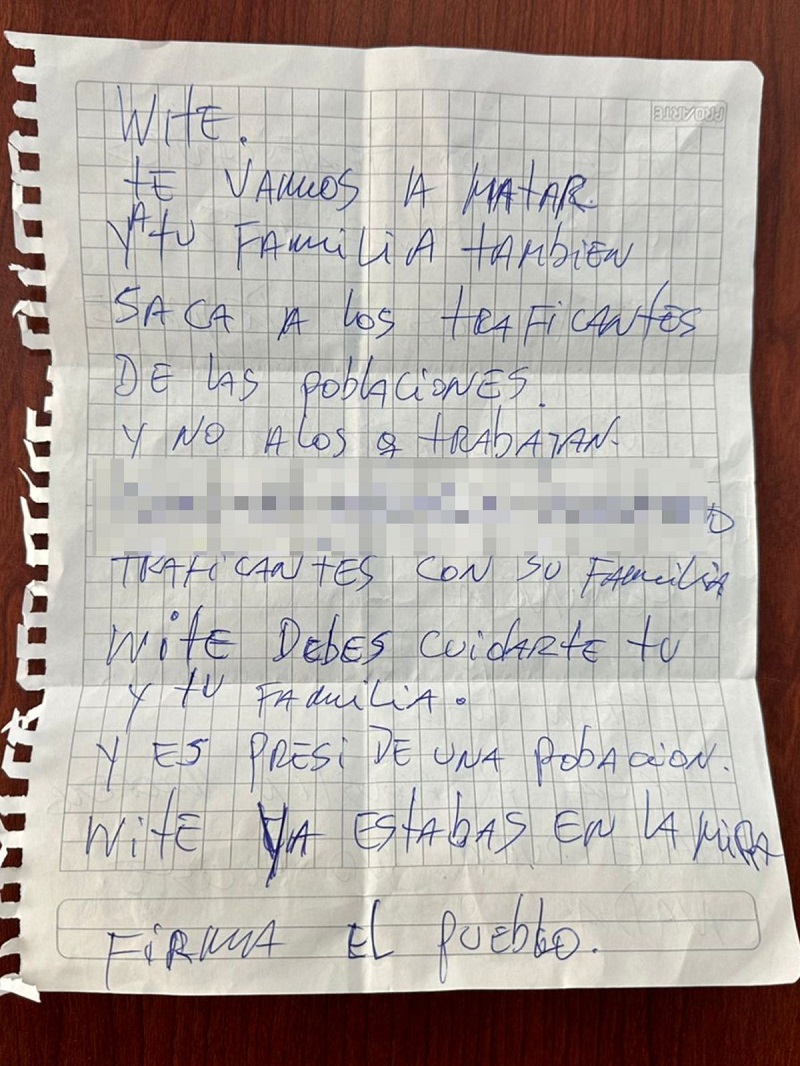 PROARTE
WITE.
TE VAMOS A MATAR
Y A TU FAMILIA TAMBIEN
SACA A LOS TRAFICANTES
DE LAS POBLACIONES.
Y NO A LOS Q TRABAJAN.
TRAFICANTES CON SU FAMILIA
WITE DEBES CUIDARTE TU
Y TU FAMILIA.
Y ES PRESI DE UNA POBACION.
WITE YA ESTABAS EN LA MIRA
FIRMA EL PUEBLO.